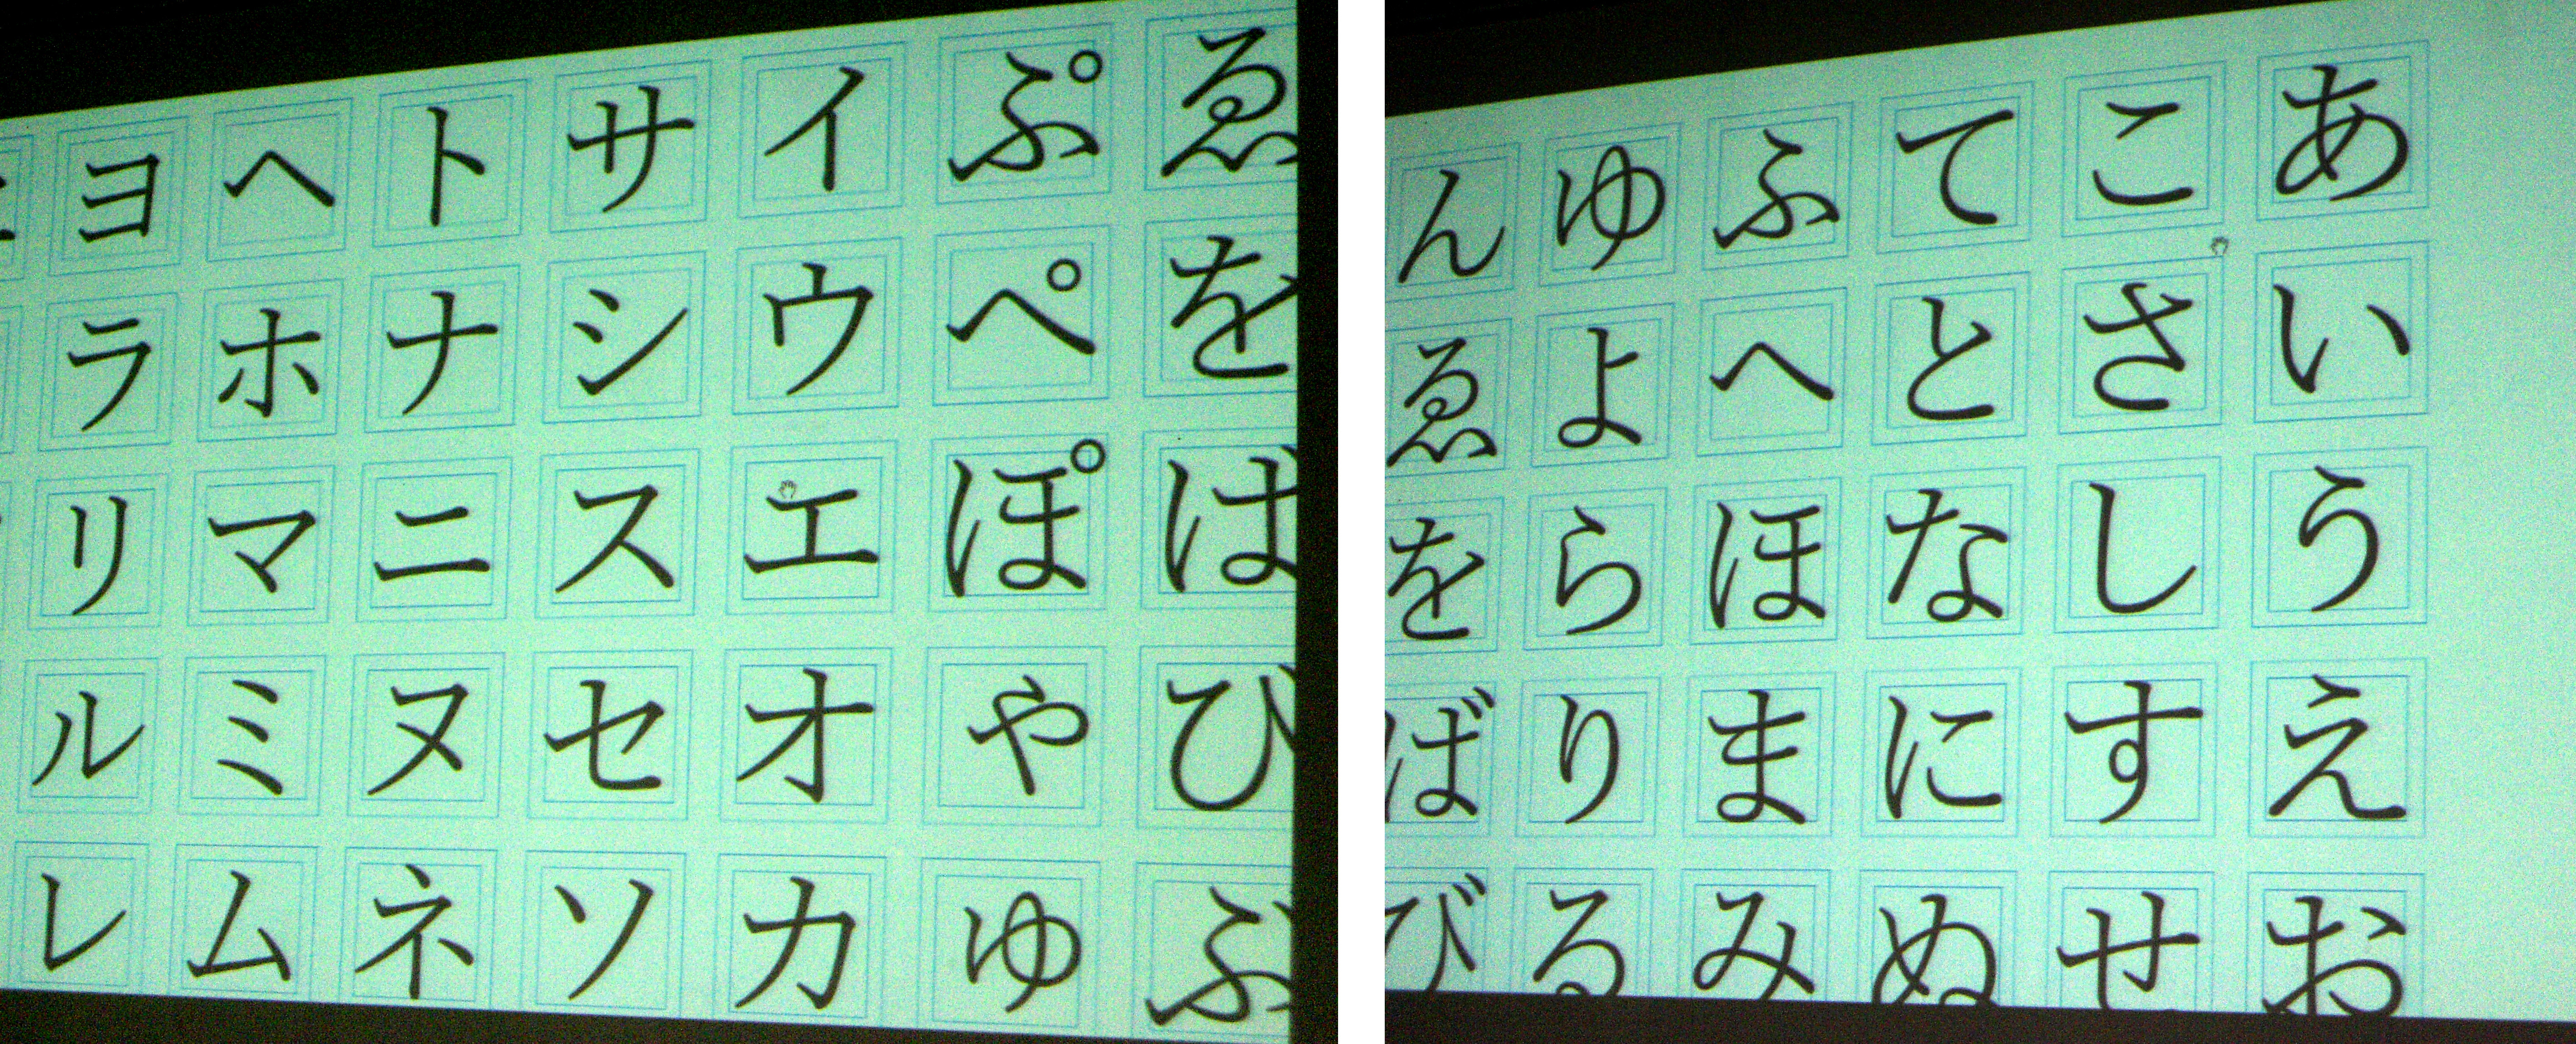 あいうえお
こさしすせ
てとなにぬ
ふへほまみ
ゆよらりる
んゑをばび
ゑをばびぶ
ぷぺぽやゆ
イウエオカ
サシスセソ
トナニヌネ
ヘホマミム
ヨラリルレ